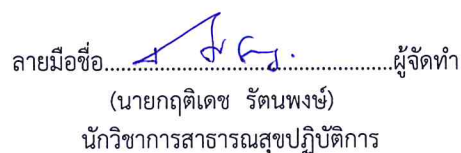 ลายมือชื่อ..........................................ผู้จัดทำ
(นายกฤติเดช รัตนพงษ์)
นักวิชาการสาธารณสุขปฏิบัติการ